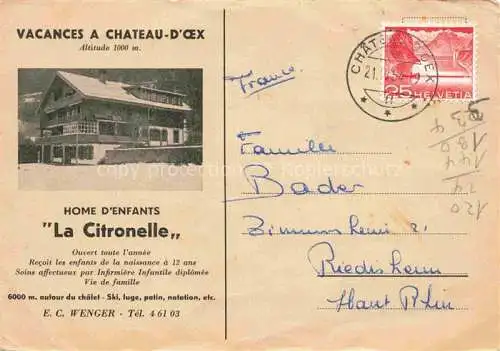 VACANCES A CHATEAU-D'ŒX
Altitude 1000 m.
HOME D'ENFANTS
"La Citronelle„
Ouvert toute l'année
Reçoit les enfants de la naissance à 12 ans
Soins affectueux par Infirmière Infantile diplômée
Vie de famille
6000 m. autour du châlet - Ski, luge, patin, natation, etc.
E. C. WENGER - Tél. 4 61 03
France
25 HELVETIA
Famille
Bader
Zimmersheim
Riedisheim
Haut Rhin
120